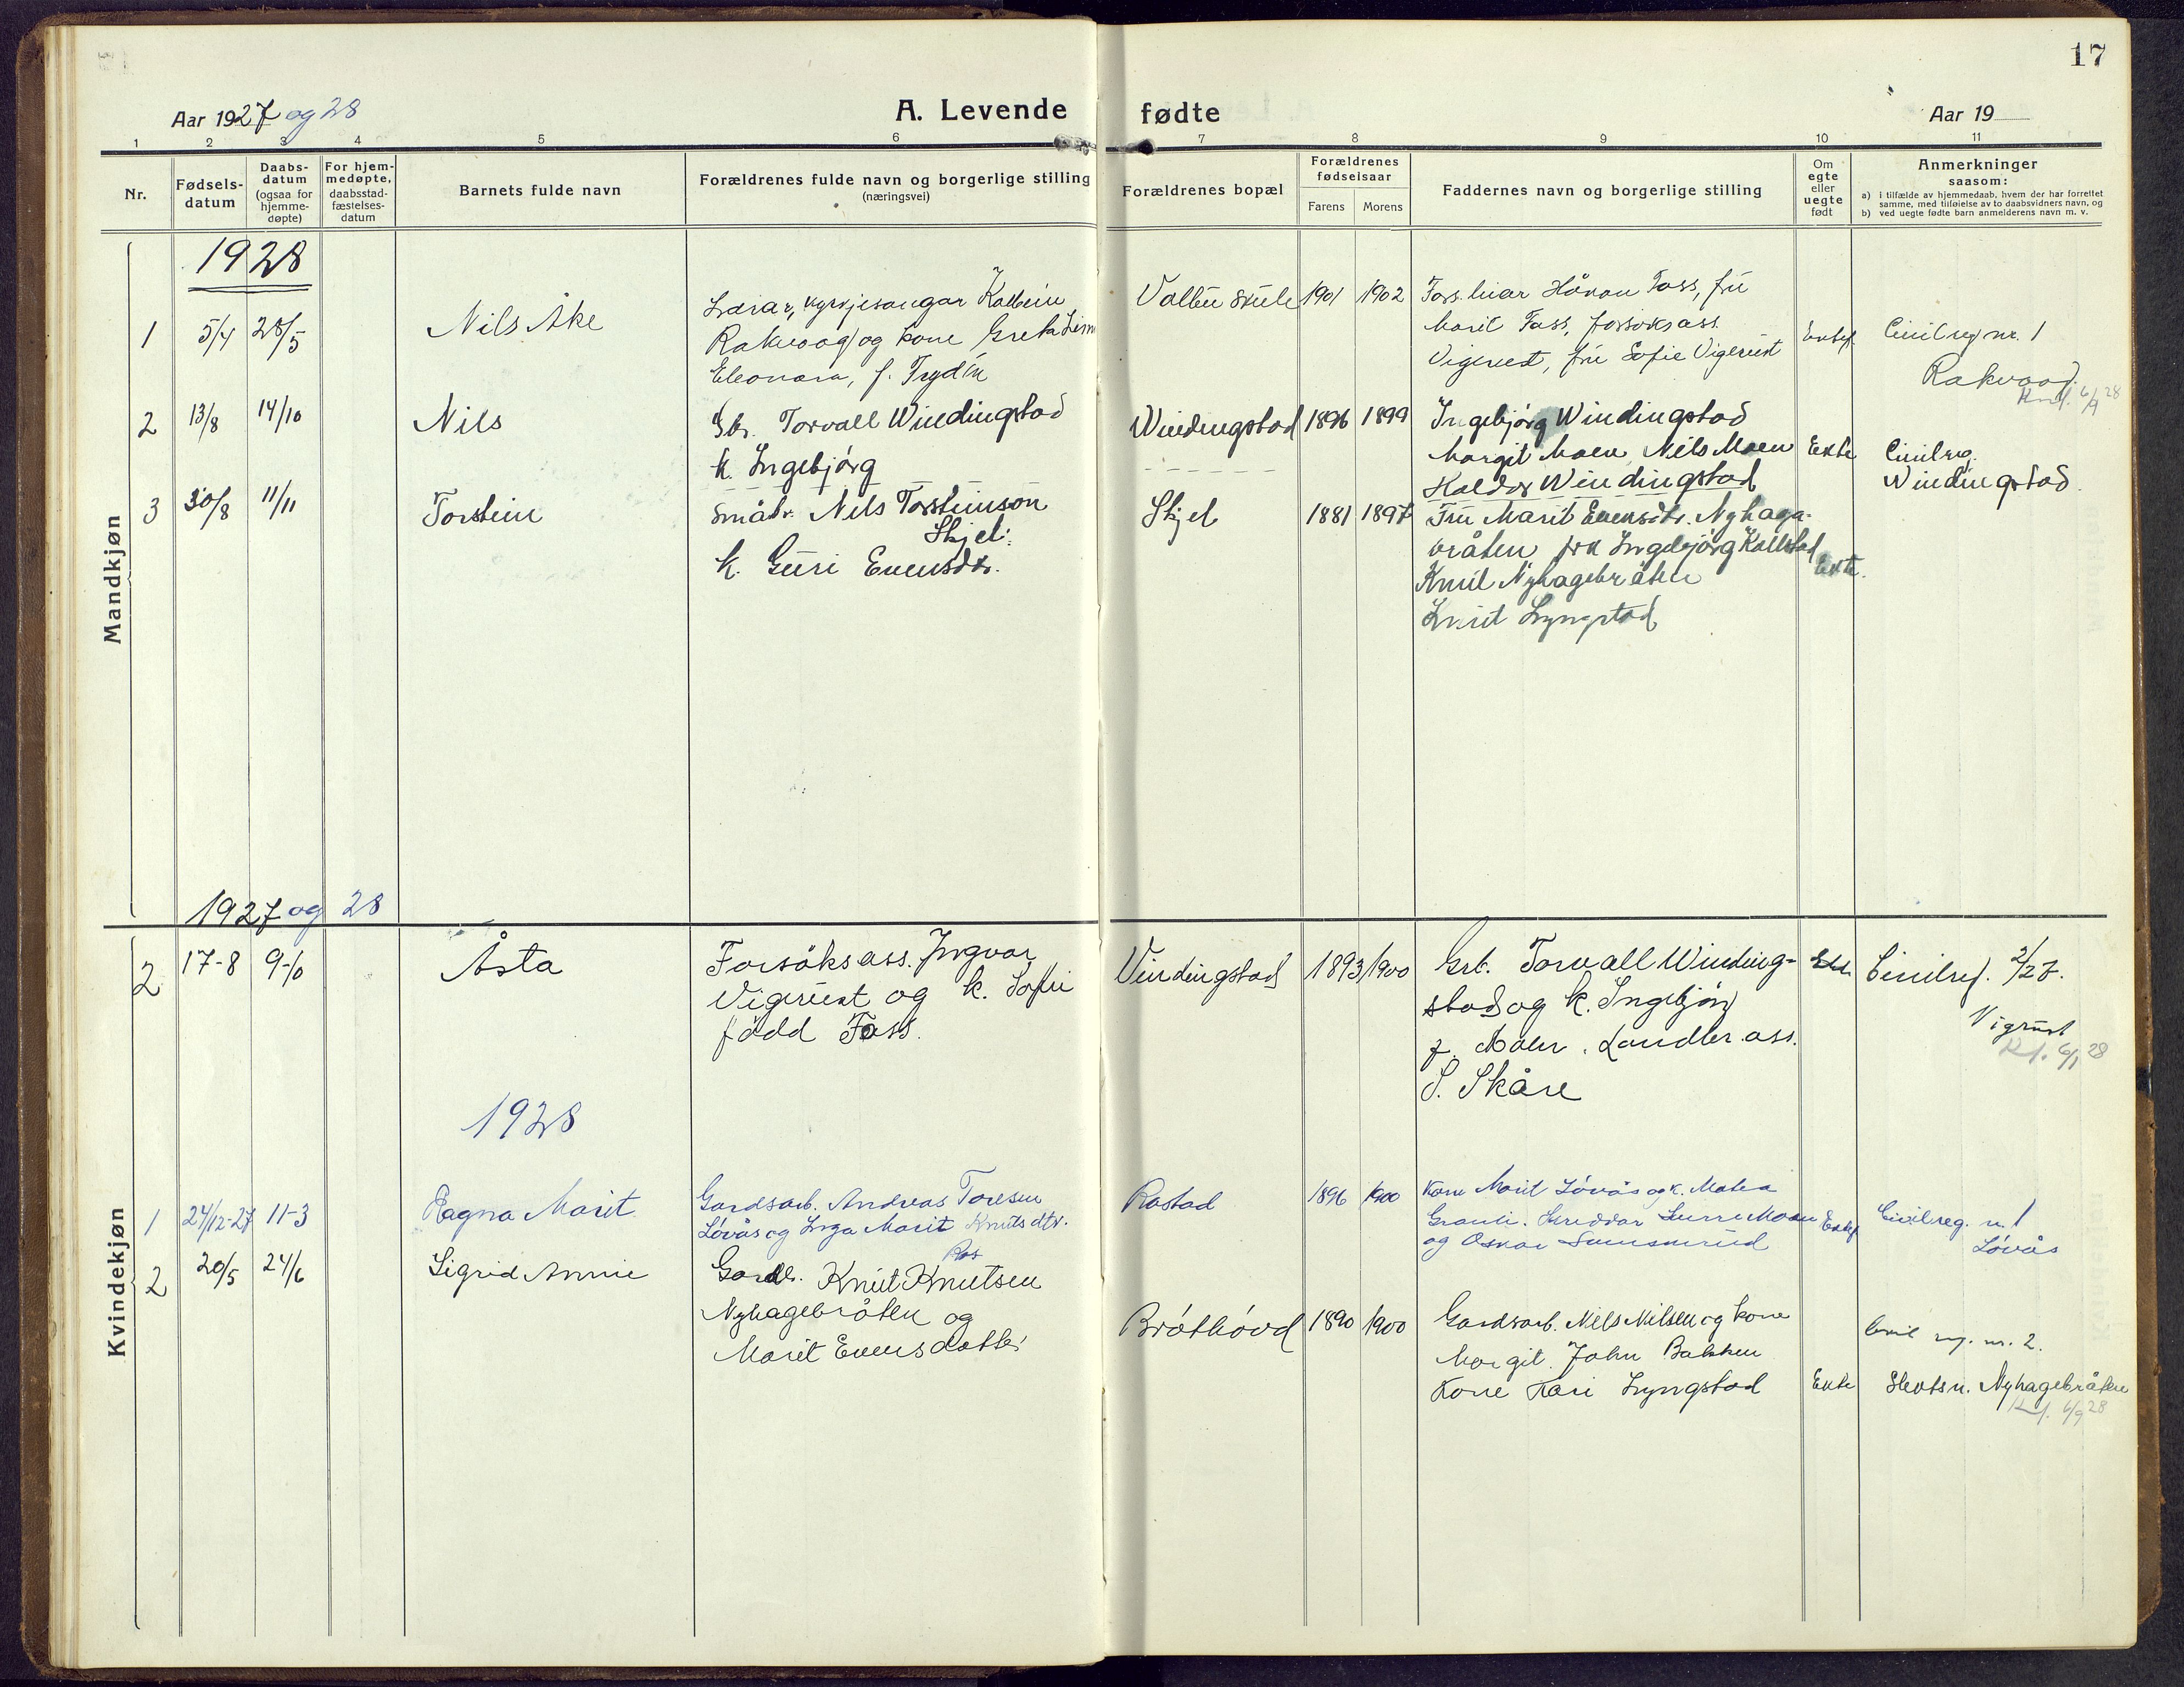 17
Aar 1927 og 28
A. Levende fødte
Aar 19
1 2 3 4 5 6 7 8 9 10 11
Nr.
Fødsels-
datum
Daabs-
datum
(ogsaa for
hjemme-
døpte)
For hjem-
medøpte,
daabsstad-
fæstelses-
datum
Barnets fulde navn
Forældrenes fulde navn og borgerlige stilling
(næringsvei)
Forældrenes bopæl
Forældrenes
fødselsaar
Farens Morens
Faddernes navn og borgerlige stilling
Om
egte
eller
uegte
født
Anmerkninger
saasom:
a) i tilfælde av hjemmedaab, hvem der har forrettet
samme, med tilføielse av to daabsvidners navn, og
b) ved uegte fødte barn anmelderens navn m. v.
Mandkjøn
1928
1 5/4 28/5 Nils Åke
Lærar, kyrkjesongar Kolbein
Rakvaag og kone Greta
Eleonora, f. Frydén
Valbu skule 1901 1902
Håvon Foss, fru
Marit Foss, forsøksass.
Vigerust, fru Sofie Vigerust
Civilreg nr. 1
Rakvaag
6/9 28
2 13/8 14/10 Nils
Gbr. Torvall Windingstad
k. Ingebjörg
Windingstad 1896 1899
Ingebjörg Windingstad
Margit Moen, Nils Moen
Haldor Windingstad
Ekte
Civilreg.
Windingstad
3 30/8 11/11 Torstein
Småbr. Nils Torsteinson
Skjel
k. Guri Evensdtr.
Skjel 1881 1897
Fru Marit Evensdtr. Nyhaga-
bråten fru Ingebjörg Kollstad
Knut Nyhagebråten
Knut Lyngstad
Ekte.
1927 og 28
Kvindekjøn
2 17-8 9-10 Åsta
Forsöksass. Ingvar
Vigerust og k. Sofie
född Foss.
Vindingstad 1893 1900
Grb. Torvall Winding-
stad og k. Ingebjörg
f. Moen. Landbr. ass.
S. Skåre
Ekte
Civilreg. 2/27.
Vigrust
28
1928
1 24/12-27 11-3 Ragna Marit
Gardsarb. Andreas Toresen
Løvås og Inga Marit Knutsdtr.
Ros
Rostad 1896 1900
Kone Marit Løvås og k. Matea
og Oskar
Civilreg. n. 1
Løvås
2 20/5 24/6 Sigrid Annie
Gardbr. Knut Knutsen
Nyhagebråten og
Marit Evensdatter
Bråthövd 1890 1900
Gardsarb. Nils Nilsen og kone
Margit. John Bakken
Kone Kari Lyngstad
Ekte
Civil reg. nr. 2.
Slektsn. Nyhagebråten
6/9 28